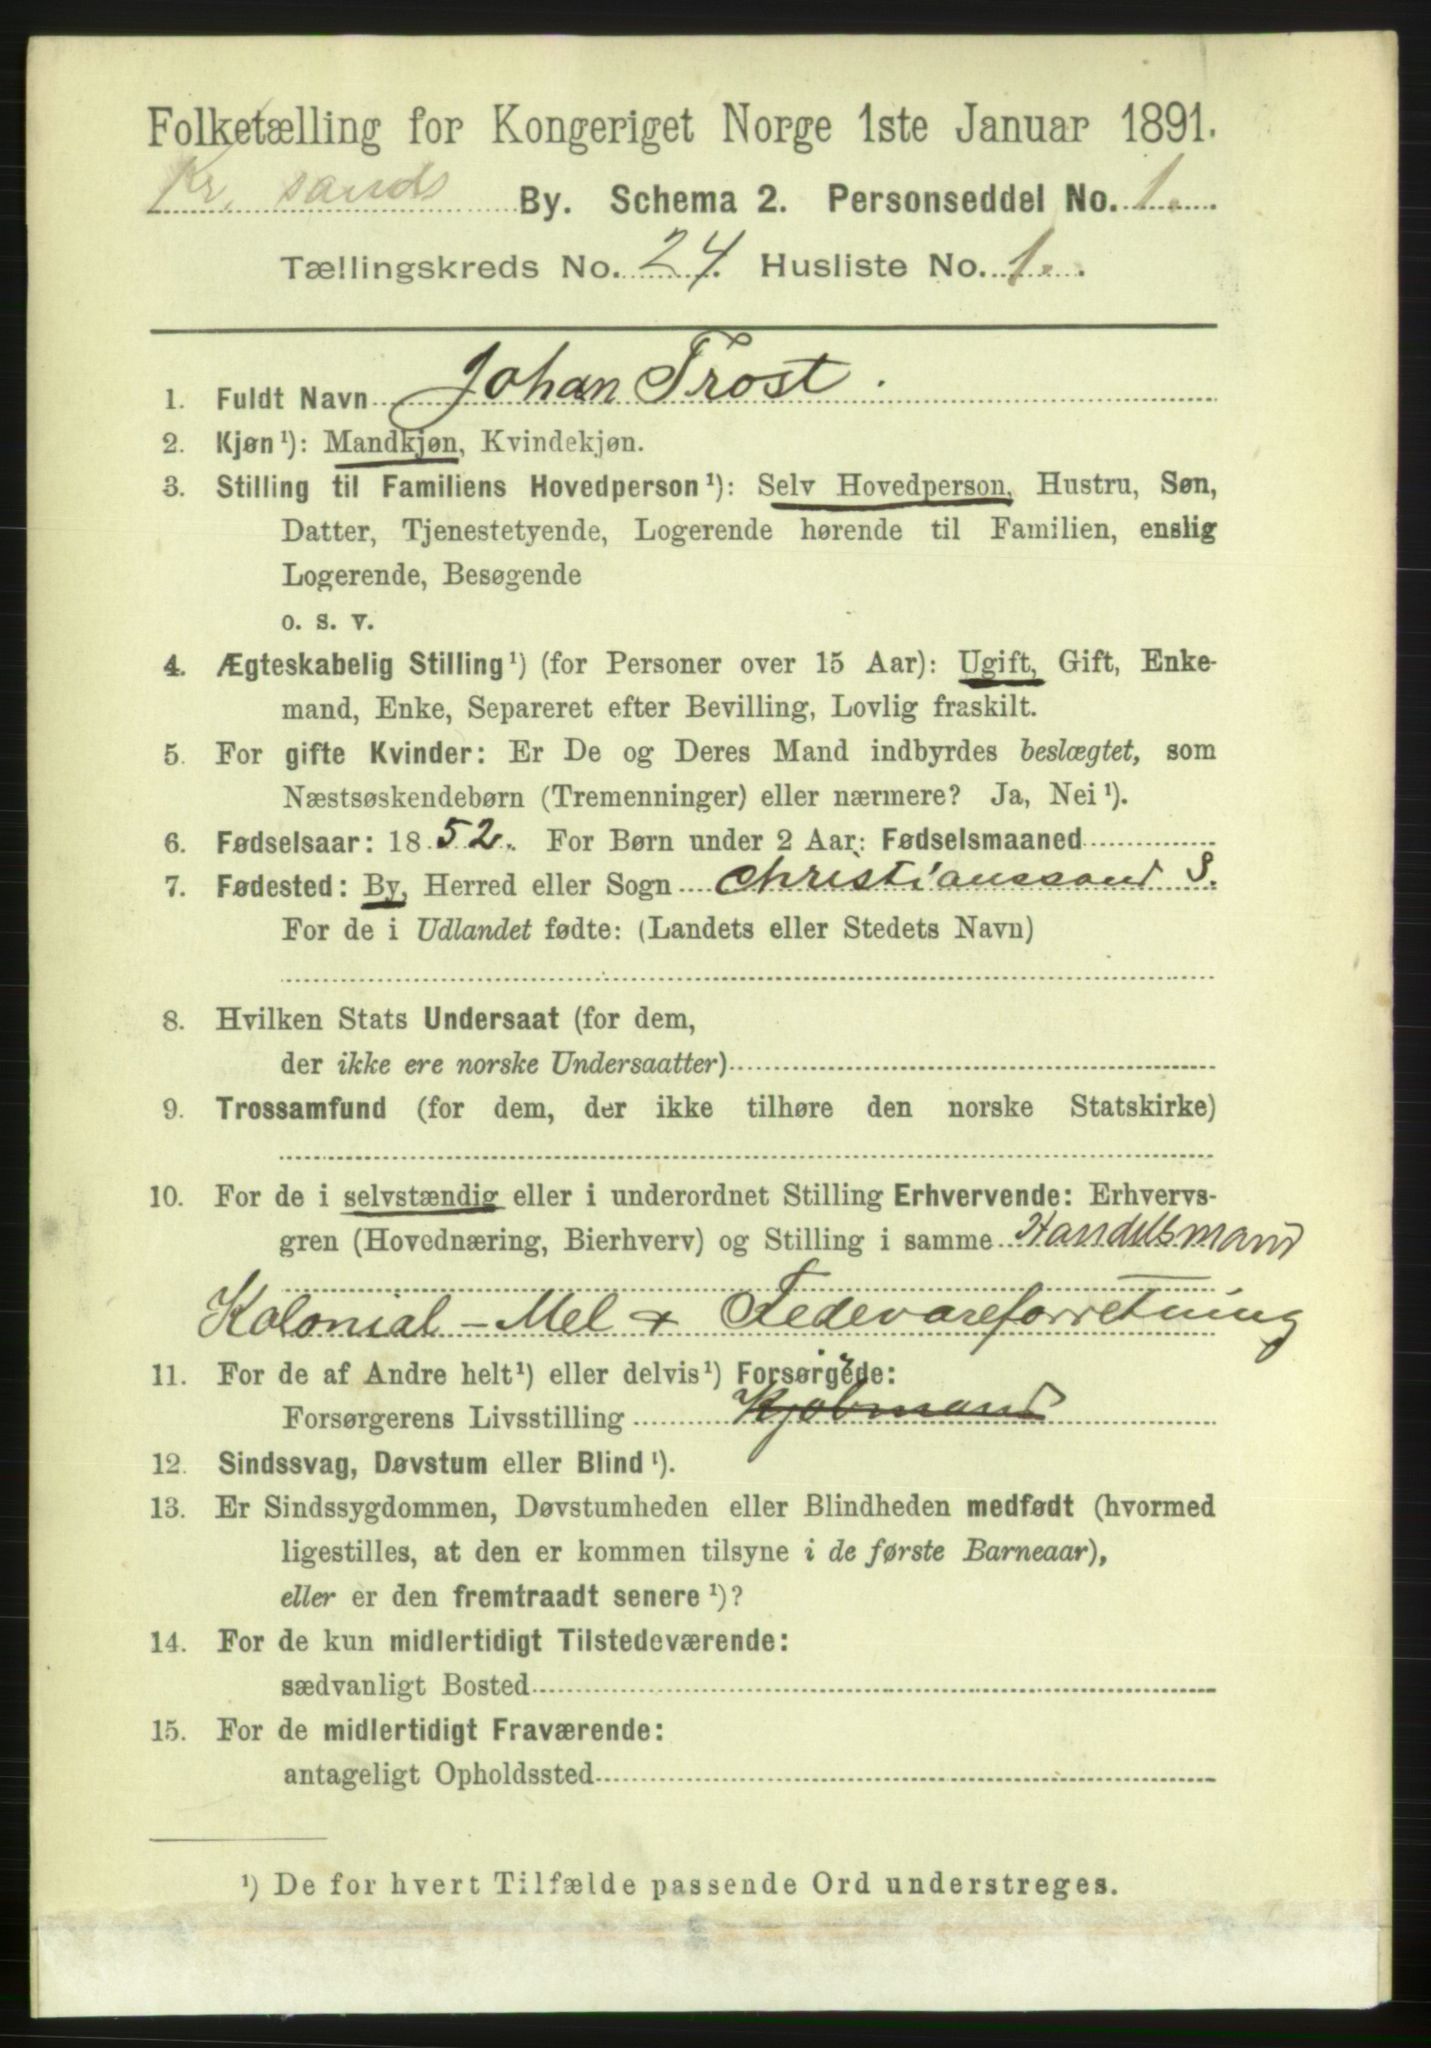 Folketælling for Kongeriget Norge 1ste Januar 1891.
Kr. sands By. Schema 2. Personseddel No. 1.
Tællingskreds No. 24. Husliste No. 1.
1. Fuldt Navn Johan Frost.
2. Kjøn¹): Mandkjøn, Kvindekjøn.
3. Stilling til Familiens Hovedperson¹): Selv Hovedperson, Hustru, Søn,
Datter, Tjenestetyende, Logerende hørende til Familien, enslig
Logerende, Besøgende
o. s. v.
4. Ægteskabelig Stilling¹) (for Personer over 15 Aar): Ugift, Gift, Enke-
mand, Enke, Separeret efter Bevilling, Lovlig fraskilt.
5. For gifte Kvinder: Er De og Deres Mand indbyrdes beslægtet, som
Næstsøskendebørn (Tremenninger) eller nærmere? Ja, Nei¹).
6. Fødselsaar: 1852. For Børn under 2 Aar: Fødselsmaaned
7. Fødested: By, Herred eller Sogn Christianssand S.
For de i Udlandet fødte: (Landets eller Stedets Navn)
8. Hvilken Stats Undersaat (for dem,
der ikke ere norske Undersaatter)
9. Trossamfund (for dem, der ikke tilhøre den norske Statskirke)
10. For de i selvstændig eller i underordnet Stilling Erhvervende: Erhvervs-
gren (Hovednæring, Bierhverv) og Stilling i samme Handelsmand
Kolonial - Mel & Fedevareforretning
11. For de af Andre helt¹) eller delvis¹) Forsørgede:
Forsørgerens Livsstilling Kjøbmand
12. Sindssvag, Døvstum eller Blind¹).
13. Er Sindssygdommen, Døvstumheden eller Blindheden medfødt (hvormed
ligestilles, at den er kommen tilsyne i de første Barneaar),
eller er den fremtraadt senere¹)?
14. For de kun midlertidigt Tilstedeværende:
sædvanligt Bosted
15. For de midlertidigt Fraværende:
antageligt Opholdssted
¹) De for hvert Tilfælde passende Ord understreges.